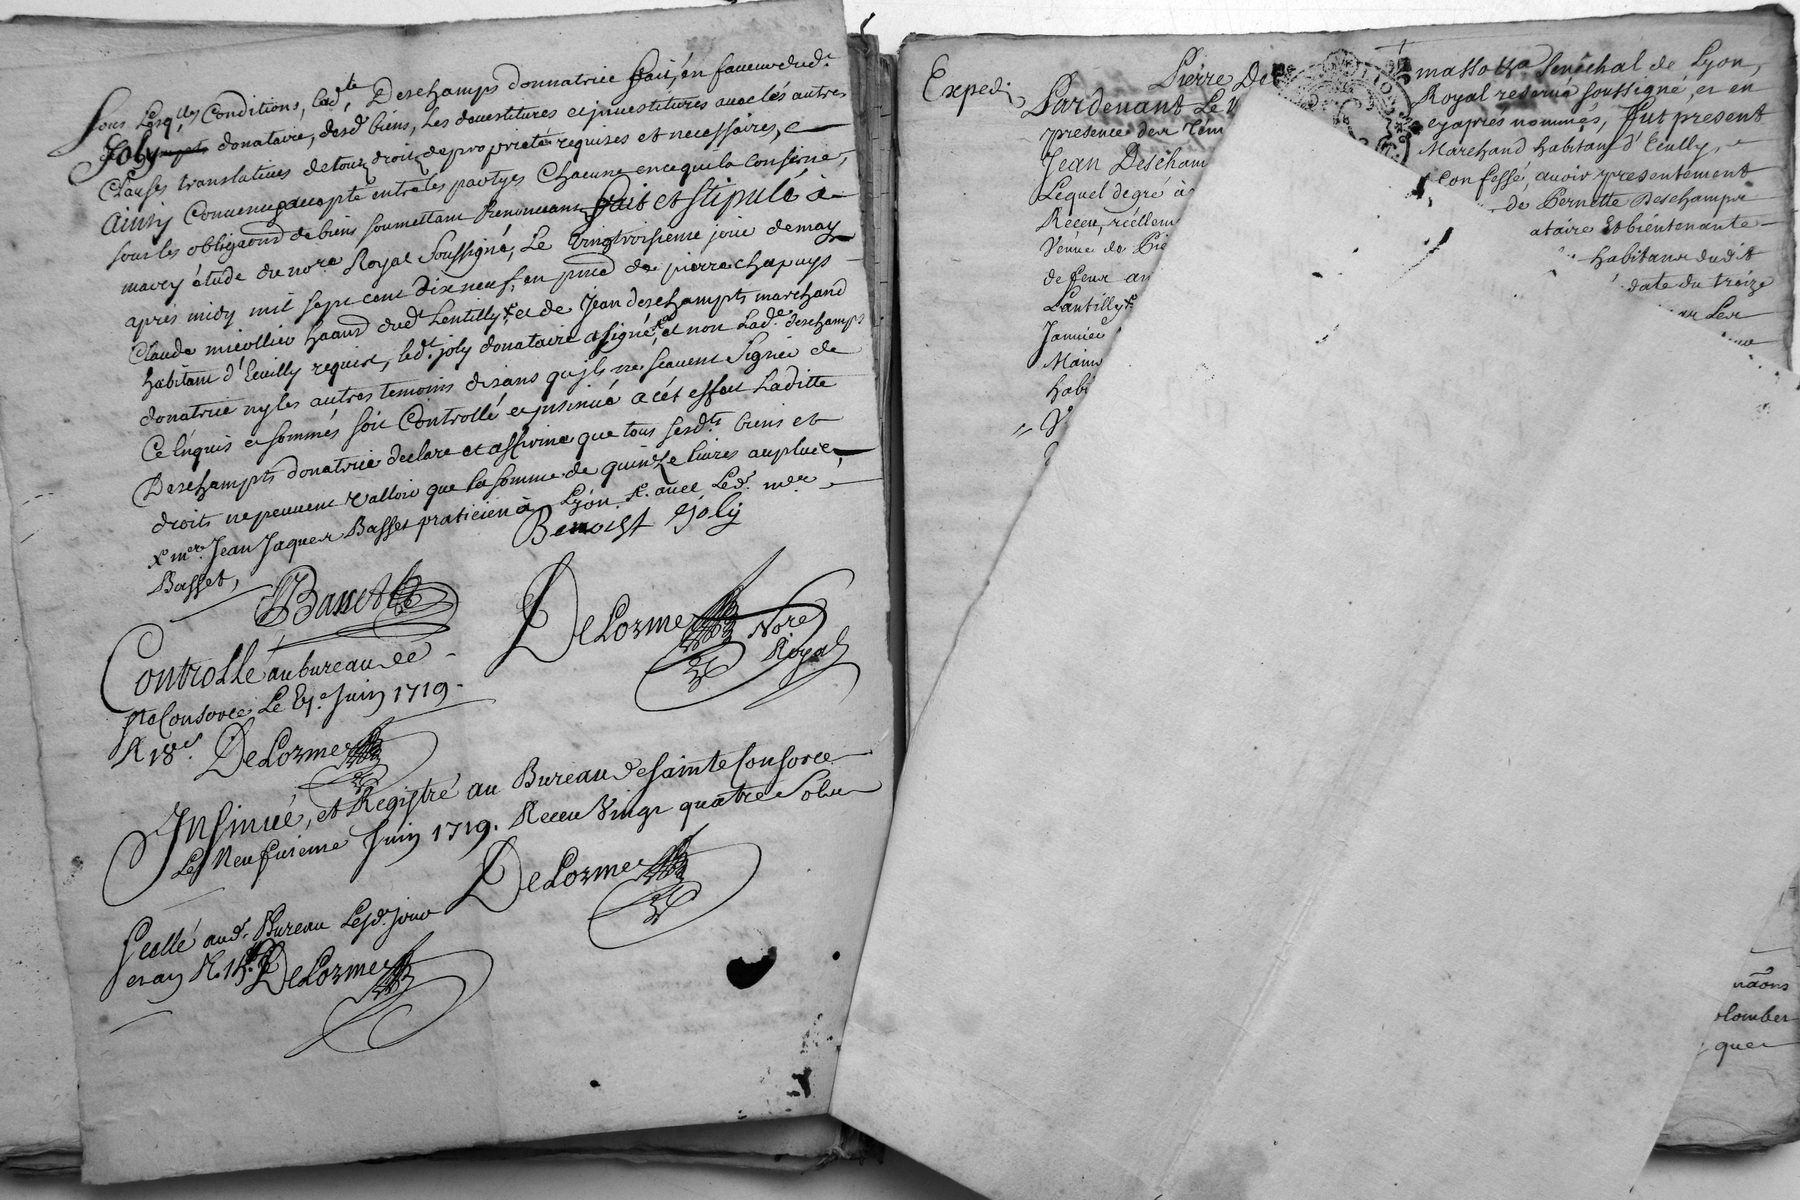 Sous Lesq.lles Conditions, Lad.te Deschamps donnatrice fait, en faveur dud.t
Joly donataire, desd. biens, Les devestitures et jnvestitures avec les autres
Clauses translatives de tous droits de proprieté requises et necessaires,
Ainsy Convenu accepté entre les partyes Chacune en ce qui la Conserne,
sous les obliga.ons de biens soumettans Renonceans fait et stipulé à
mavey étude du no.re Royal Soussigné, Le vingtroisieme jour de may
apres midy mil sept cent Dix neuf, en p.nce de pierre chapuys
Claude micollier haant dud. Lentilly, et de Jean deschampts marchand
habitant d'Ecuilly requist, led. joly donataire a signé, et non Lad.e deschamps
donatrice ny les autres temoins disans qu'jls ne scavent Signer de
Ce Enquis et sommés soit Controllé et jnsinué a cet effect Laditte
Deschampts donatrice declare et affirme que tous sesd.ts biens et
droits ne peuvent valloir que la somme de quinze livres au plus,
x m.re Jean Jaques Basset praticien à Lyon x. avec Led. m.er
Basset,
Benoist Joly
JBasset
DeLorme Nore
Royal
Controllé au bureau de
Ste Consorce Le 9.e Juin 1719
R 18s DeLorme
Insinué, et Registré au Bureau de Sainte Consorce
Le Neufvieme Juin 1719. Receu Vingt quatre Sols
DeLorme
Scellé aud. Bureau Lesd. jour
et an R. DeLorme
Expedié
Pierre De
Pardevant Le
presence des Tém
Jean Descham
Lequel degré à
Receu, réellem
Venue de Pie
de feux an
Lantilly
Janvier
Main
habi
mallo Senechal de Lyon,
Royal reservé soussigné, et en
cy aprés nommés, fut present
Marchand habitant d'Ecully,
confessé, avoir presentement
de Pernette Deschamps
ataire Et bientenante
habitans dudit
date du treize
par Les
na.ons
olomber
quer